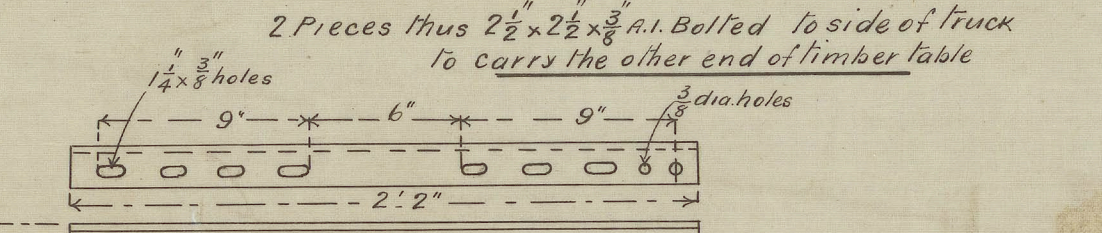 2 Pieces thus 2 1/2" x 2 1/2" x 3/8" A.I. Bolted to side of truck
to carry the other end of timber table
1 1/4" x 3/8" holes
3/8 dia. holes
9" 6" 9"
2'. 2"